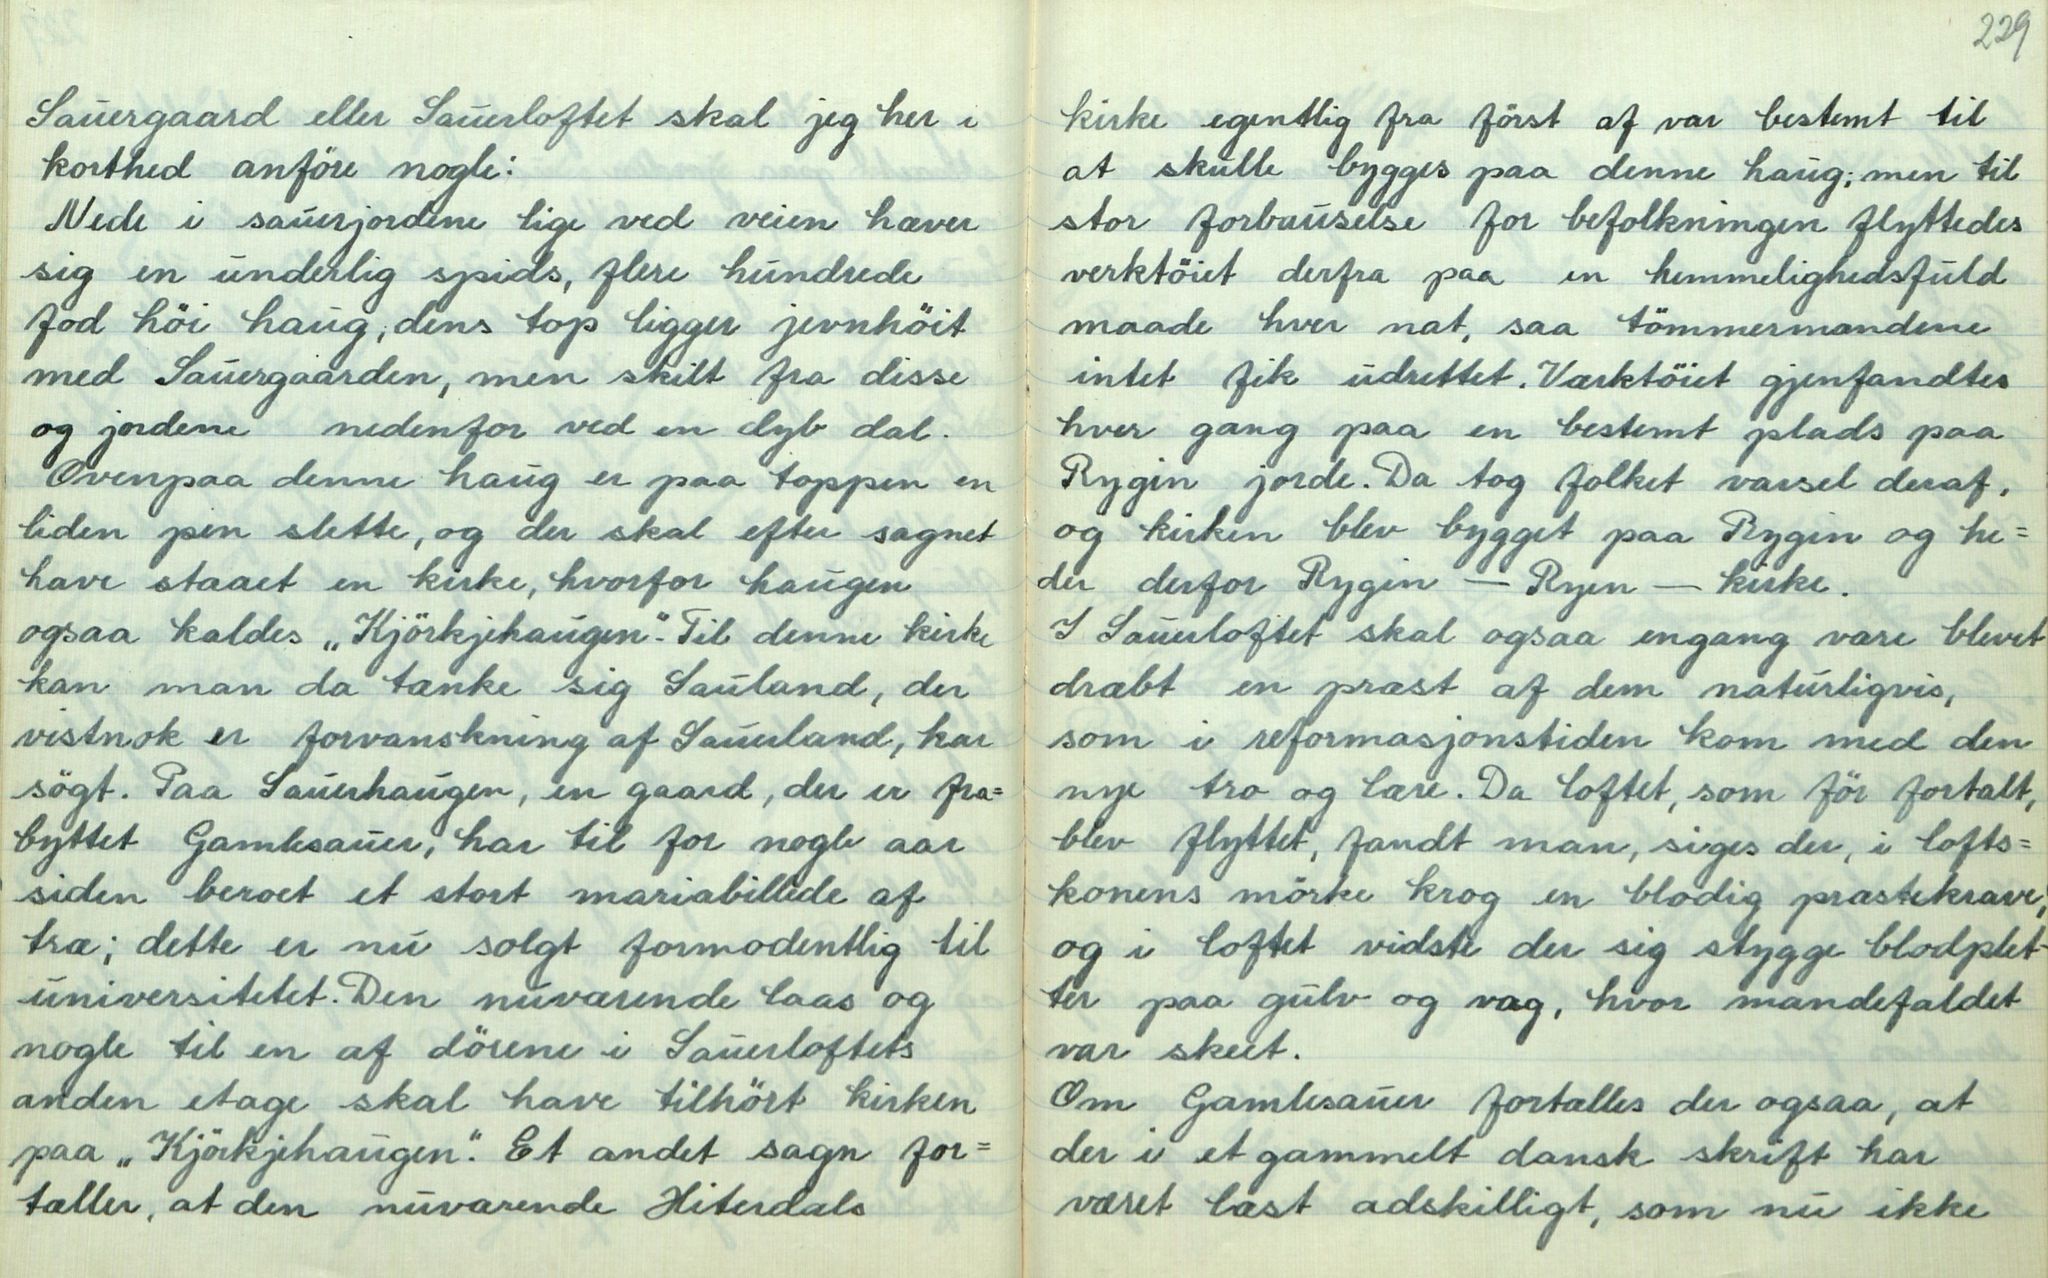 Sauergaard eller Sauerloftet skal jeg her i
korthed anföre nogle:
Nede i sauerjordene lige ved veien hæver
sig en underlig spids, flere hundrede
fod höi haug; dens top ligger jevnhöit
med Sauergaarden, men skilt fra disse
og jordene nedenfor ved en dyb dal.
Ovenpaa denne haug er paa toppen en
liden pen slette, og der skal efter sagnet
have staaet en kirke, hvorfor haugen
ogsaa kaldes „Kjörkjehaugen". Til denne kirke
kan man da tænke sig Sauland, der
vistnok er forvanskning af Sauerland, har
sögt. Paa Sauerhaugen, en gaard, der er fra=
byttet Gamlesauer, har til for nogle aar
siden beroet et stort mariabillede af
træ; dette er nu solgt formodentlig til
universitetet. Den nuværende laas og
nøgle til en af dörene i Sauerloftets
anden etage skal have tilhört kirken
paa „Kjörkjehaugen". Et andet sagn for=
tæller, at den nuværende Hiterdals
229
kirke egentlig fra först af var bestemt til
at skulle bygges paa denne haug; men til
stor forbauselse for befolkningen flyttedes
verktöiet derfra paa en hemmelighedsfuld
maade hver nat, saa tömmermandene
intet fik udrettet. Værktöiet gjenfandtes
hver gang paa en bestemt plads paa
Rygin jorde. Da tog folket varsel deraf,
og kirken blev bygget paa Rygin og he=
der derfor Rygin — Ryen — kirke.
I Sauerloftet skal ogsaa engang være blevet
dræbt en præst af dem naturligvis,
som i reformasjonstiden kom med den
nye tro og lære. Da loftet, som för fortalt,
blev flyttet, fandt man, siges der, i lofts=
konens mörke krog en blodig præstekrave,
og i loftet vidste der sig stygge blodplet-
ter paa gulv og væg, hvor mandefaldet
var skeet.
Om Gamlesauer fortælles der ogsaa, at
der i et gammelt dansk skrift har
været læst adskilligt, som nu ikke